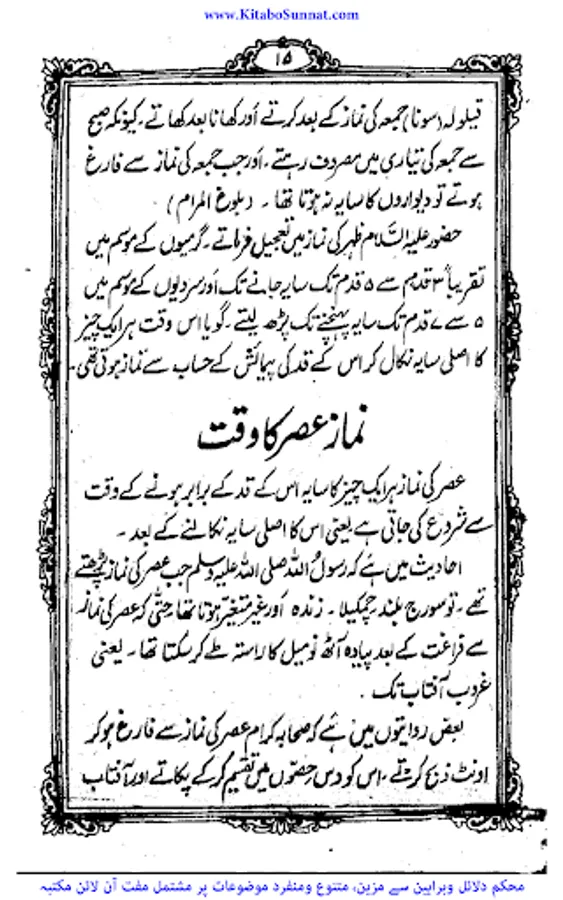 www.KitaboSunnat.com
۱۵
قیلولہ (سونا) جمعہ کی نماز کے بعد کرتے اور کھانا بعد کھاتے۔ کیونکہ صبح
سے جمعہ کی تیاری میں مصروف رہتے۔ اور جب جمعہ کی نماز سے فارغ
ہوتے تو دیواروں کا سایہ نہ ہوتا تھا۔ (بلوغ المرام)
حضور علیہ السلام ظہر کی نماز میں تعجیل فرماتے۔ گرمیوں کے موسم میں
تقریباً ۳ قدم سے ۵ قدم تک سایہ جانے تک اور سردیوں کے موسم میں
۵ سے ۷ قدم تک سایہ پہنچنے تک پڑھ لیتے۔ گویا اس وقت ہر ایک چیز
کا اصلی سایہ نکال کر اس کے قد کی پیمائش کے حساب سے نماز ہوتی تھی۔
نماز عصر کا وقت
عصر کی نماز ہر ایک چیز کا سایہ اس کے قد کے برابر ہونے کے وقت
سے شروع کی جاتی ہے یعنی اس کا اصلی سایہ نکالنے کے بعد۔
احادیث میں ہے کہ رسول اللہ صلی اللہ علیہ وسلم جب عصر کی نماز پڑھتے
تھے۔ تو سورج بلند چمکیلا۔ زندہ اور غیر متغیر ہوتا تھا حتیٰ کہ عصر کی نماز
سے فراغت کے بعد پیادہ آٹھ نو میل کا راستہ طے کر سکتا تھا۔ یعنی
غروب آفتاب تک۔
بعض روایتوں میں ہے کہ صحابہ کرام عصر کی نماز سے فارغ ہو کر
اونٹ ذبح کرتے، اس کو دس حصوں میں تقسیم کر کے پکاتے اور آفتاب
محکم دلائل وبراہین سے مزین، متنوع ومنفرد موضوعات پر مشتمل مفت آن لائن مکتبہ